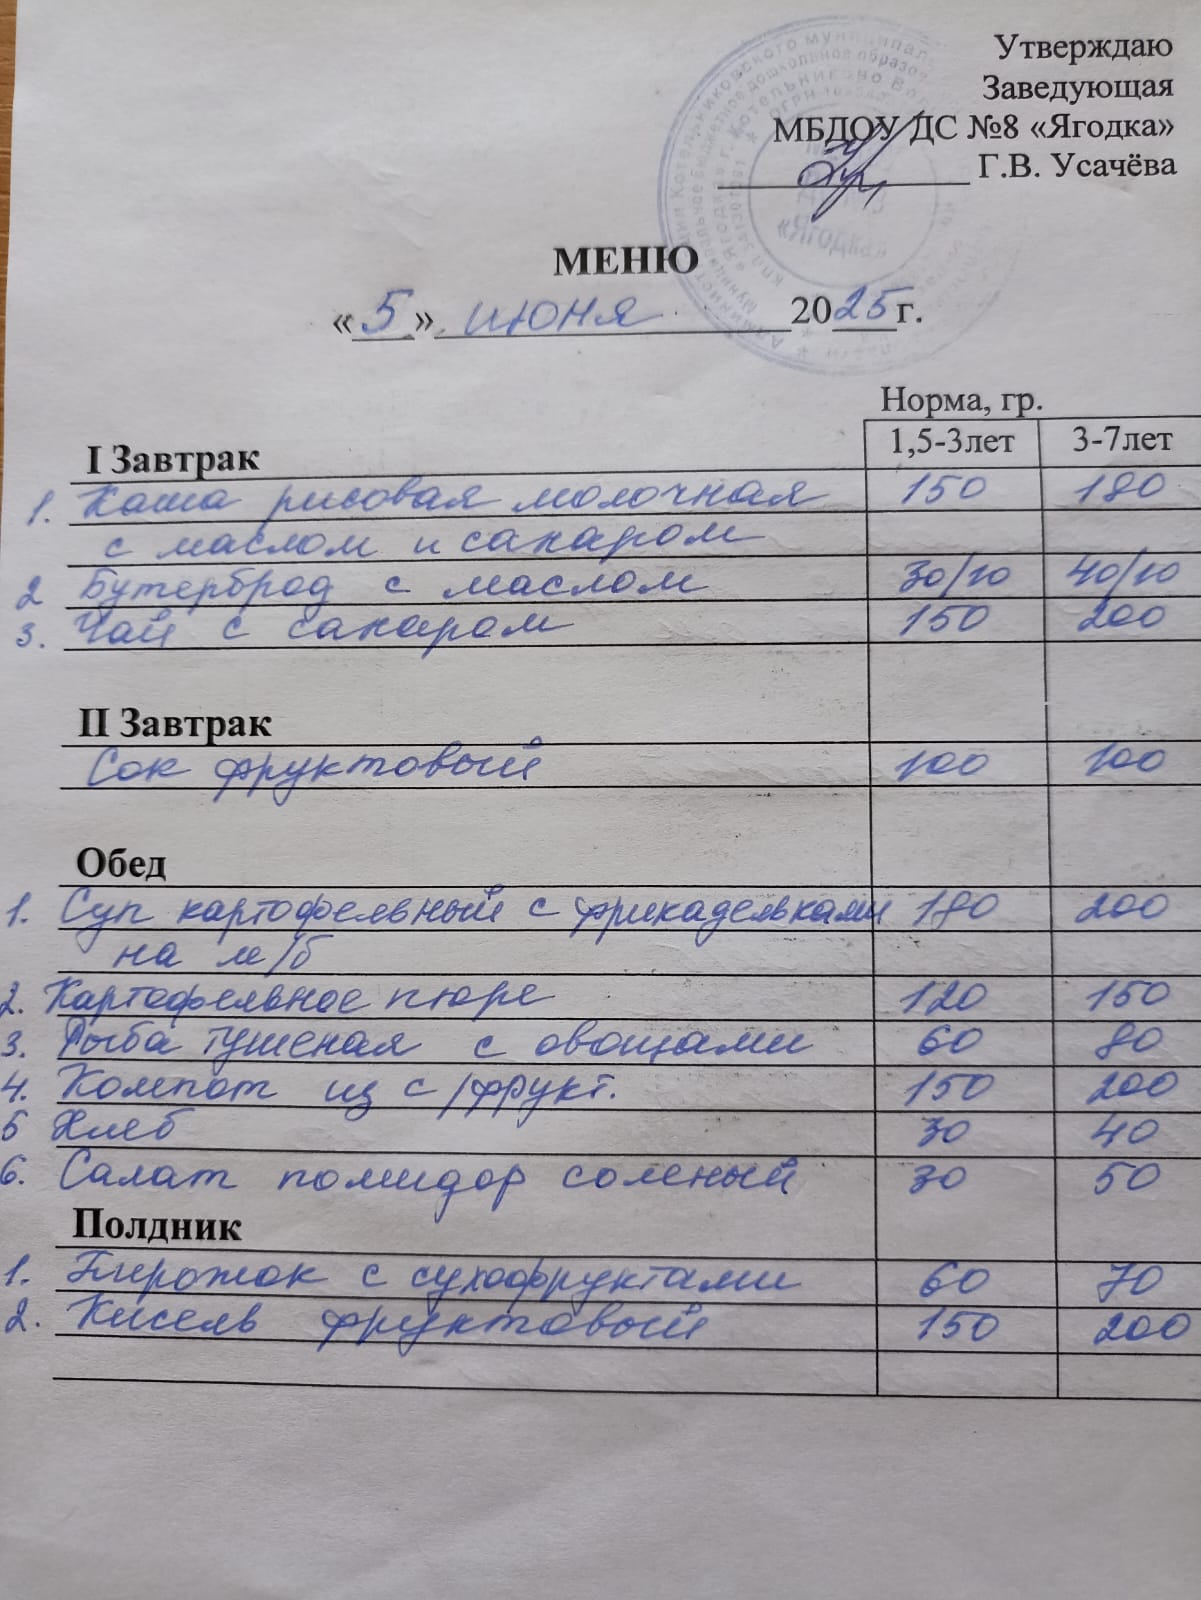 Утверждаю
Заведующая
МБДОУ ДС №8 «Ягодка»
Г.В. Усачёва
«Ягодка»
МЕНЮ
«5» июня 2025г.
Норма, гр.
I Завтрак 1,5-3лет 3-7лет
1. Каша рисовая молочная 150 180
с маслом и сахаром
2 Бутерброд с маслом 30/10 40/10
3. Чай с сахаром 150 200
II Завтрак
Сок фруктовый 100 100
Обед
1. Суп картофельный с фрикадельками 180 200
на м/б
2. Картофельное пюре 120 150
3. Рыба тушеная с овощами 60 80
4. Компот из с/фрукт. 150 200
5 Хлеб 30 40
6. Салат помидор соленый 30 50
Полдник
1. Пирожок с сухофруктами 60 70
2. Кисель фруктовый 150 200